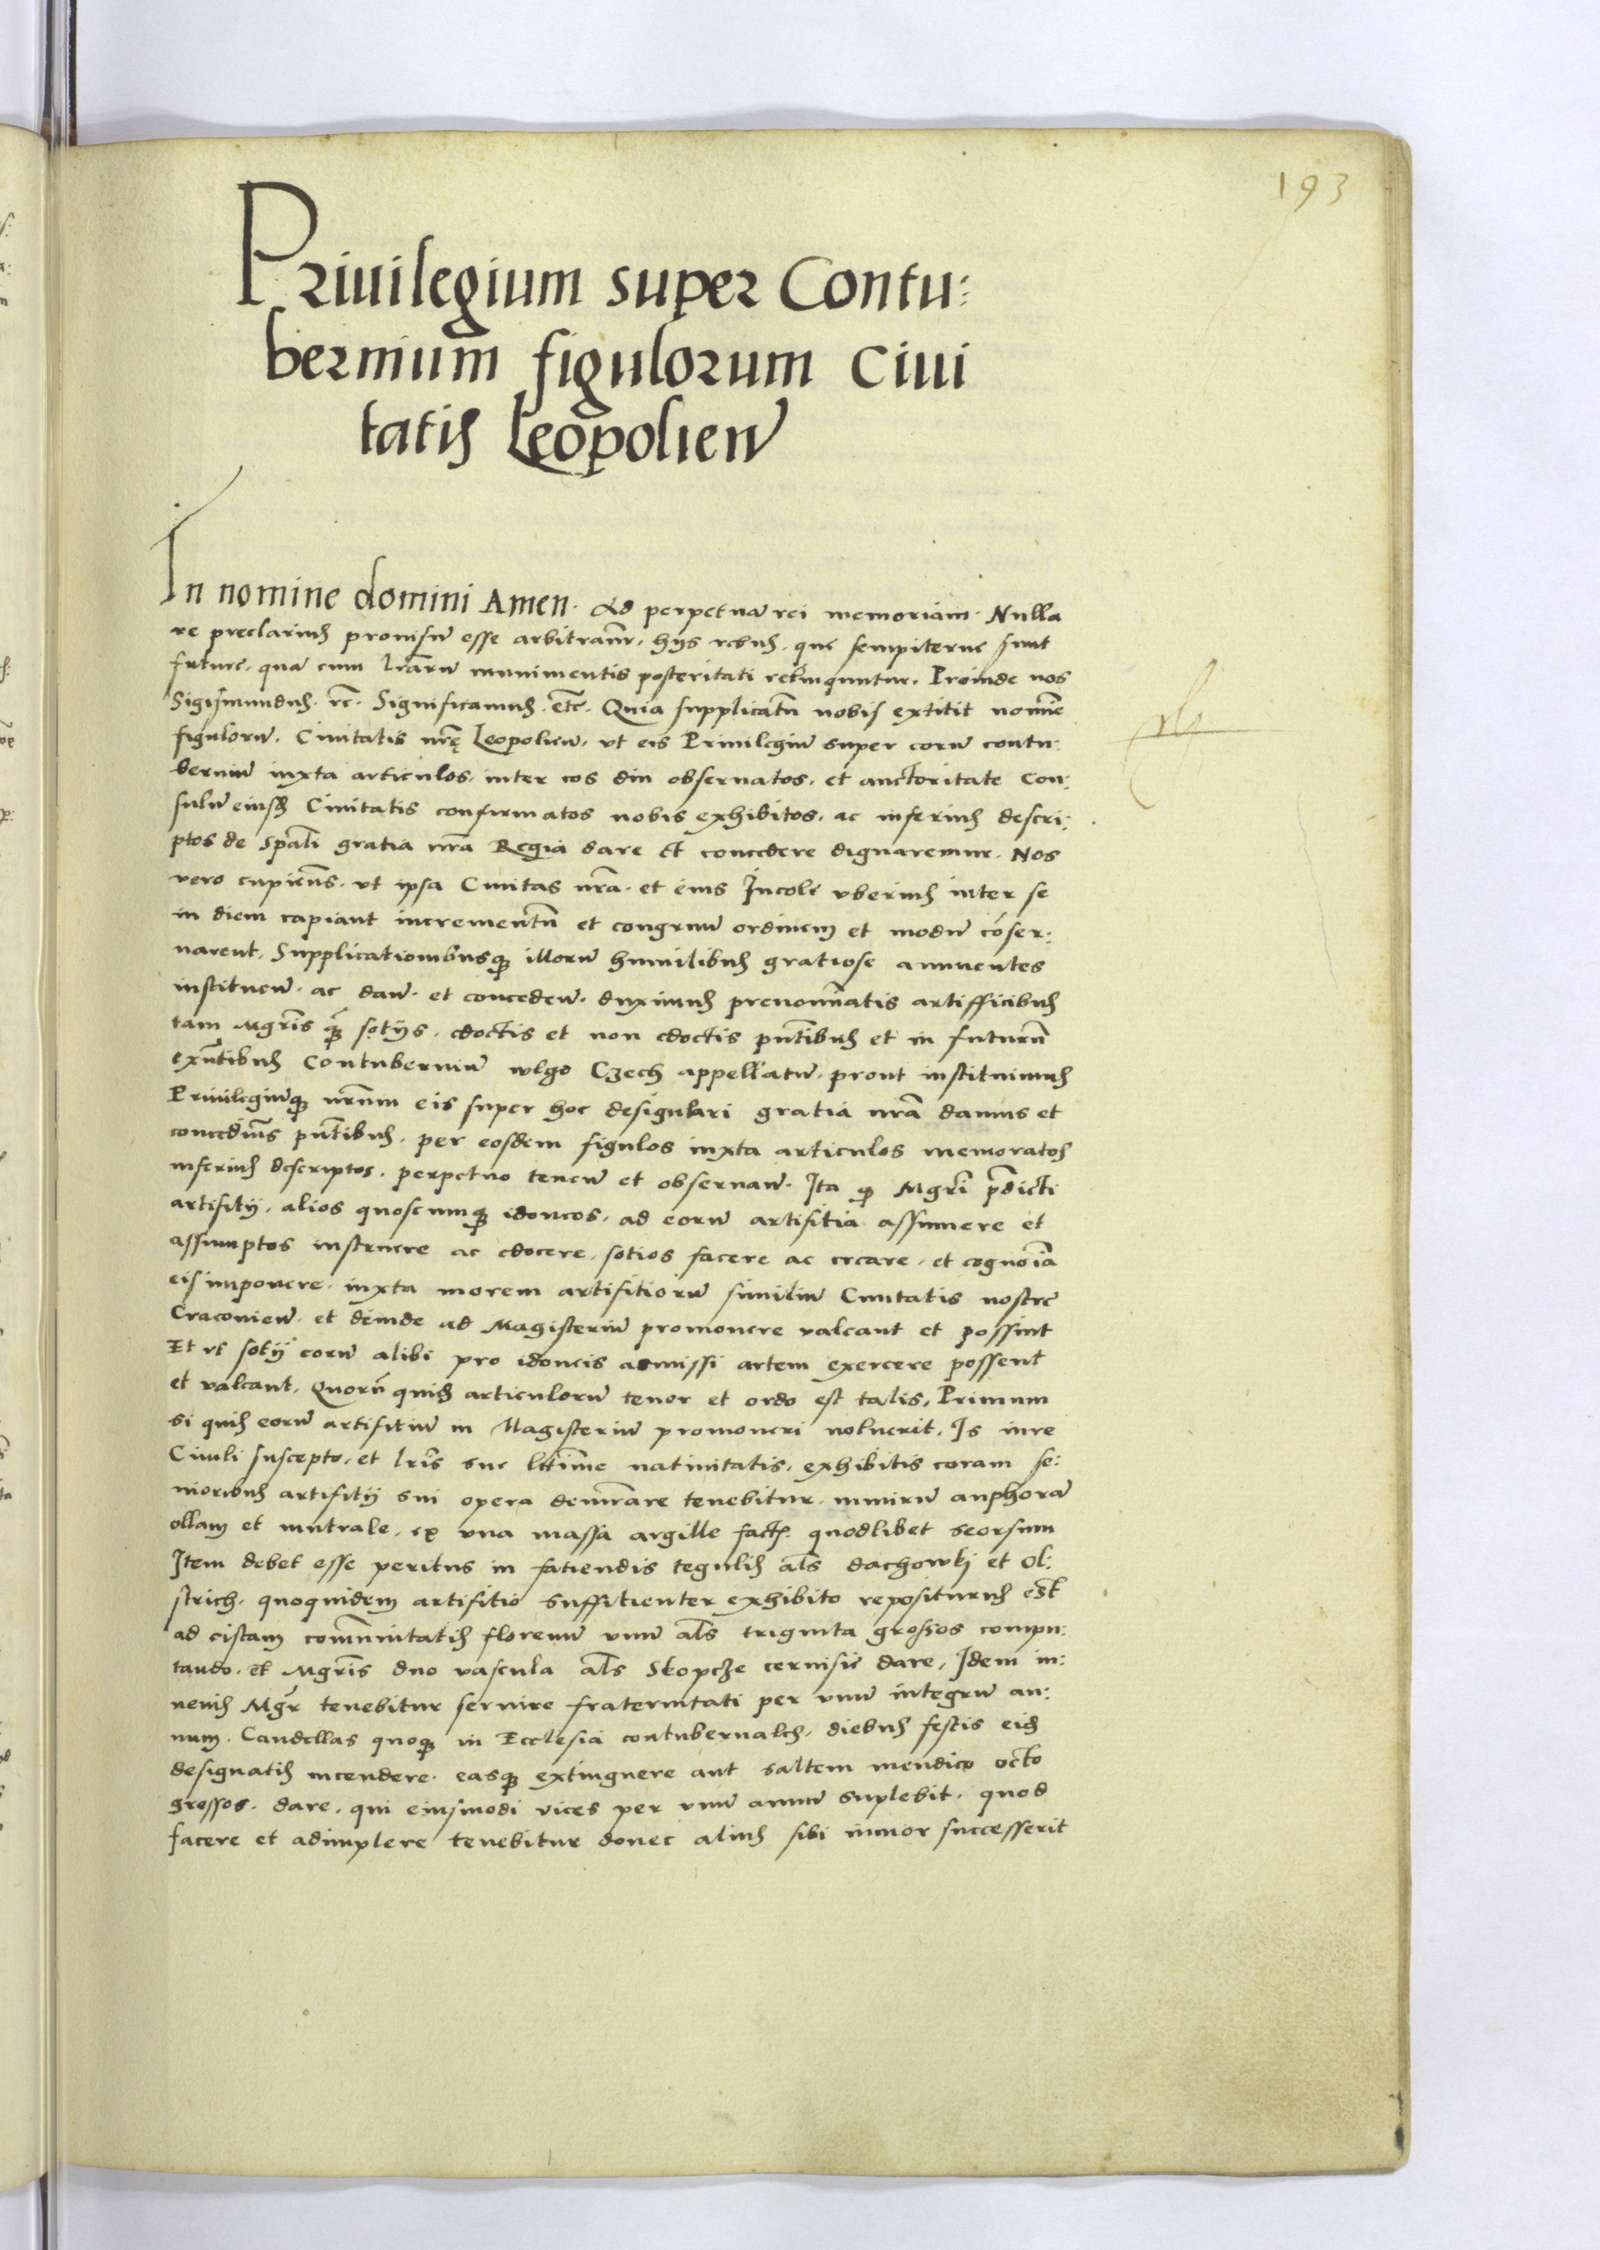 193
Priuilegium super Contu:
bernium figulorum Ciui
tatis Leopolien
In nomine domini Amen. Ad perpetuam rei memoriam. Nulla
re preclarius prouisum esse arbitramr. hys rebus. que sempiterne sunt
future. quam cum lrarum munimentis posteritati relinquntur. Proinde nos
Sigismundus. rc. Significamus. etc. Quia supplicatum nobis extitit nomine
figulorum. Ciuitatis nre Leopolien. vt eis Priuilegium super eorum contu:
bernium iuxta articulos. inter eos diu obseruatos. et auctoritate Con:
sulum eiusd Ciuitatis confirmatos nobis exhibitos. ac inferius descri:
ptos de spali gratia nra Regia dare et concedere dignaremur. Nos
vero cupiens. vt ipsa Ciuitas nra. et eius Incole vberius inter se
in diem capiant incrementum et congruum ordinem et modum coser:
uarent. Supplicationibusq illorum humilibus gratiose annuentes
instituen. ac dan. et conceden. duximus prenominatis artifficibus
tam Mgris q sotys. edoctis et non edoctis pntibus et in futurum
exntibus Contubernium wlgo Czech appellatum. prout instituimus
Priuilegiumq nrum eis super hoc desigulari gratia nra damus et
concedims pntibus. per eosdem figulos iuxta articulos memoratos
inferius descriptos. perpetuo tenen et obseruan. Ita q Mgri pdicti
artifitij. alios quoscumq idoneos. ad eorum artifitia assumere et
assumptos instruere ac edocere. sotios facere ac creare. et cognoia
eis imponere. iuxta morem artifitiorum similium Ciuitatis nostre
Cracouien. et deinde ad Magisterium promouere valeant et possint
Et vt sotij eorum alibi pro idoneis admissi artem exercere possent
et valeant. Quorum quid articulorum tenor et ordo est talis. Primum
si quis eorum artifitium in Magisterium promoueri voluerit. Is iure
Ciuili suscepto. et lris sue lttime natiuitatis. exhibitis coram se:
nioribus artifitij sui opera demrare tenebitur. nimirum anphoram
ollam et mutrale. ex vna massa argille fact. quodlibet seorsum
Item debet esse peritus in fatiendis tegulis als dachowki et Ol:
strich. quoquidem artifitio suffitienter exhibito repositurus est
ad cistam comunitatis florenum vnum als triginta grossos compu:
tando. et Mgris duo vascula als Skopcze ceruisie dare. Idem iu:
uenis Mgr tenebitur seruire fraternitati per vnum integrum an:
num. Candellas quoq in Ecclesia contubernales. diebus festis eis
designatis incendere. easq extinguere aut saltem mendico octo
grossos. dare. qui eiusmodi vices per vnum annum suplebit. quod
facere et adimplere tenebitur donec alius sibi iunior successerit